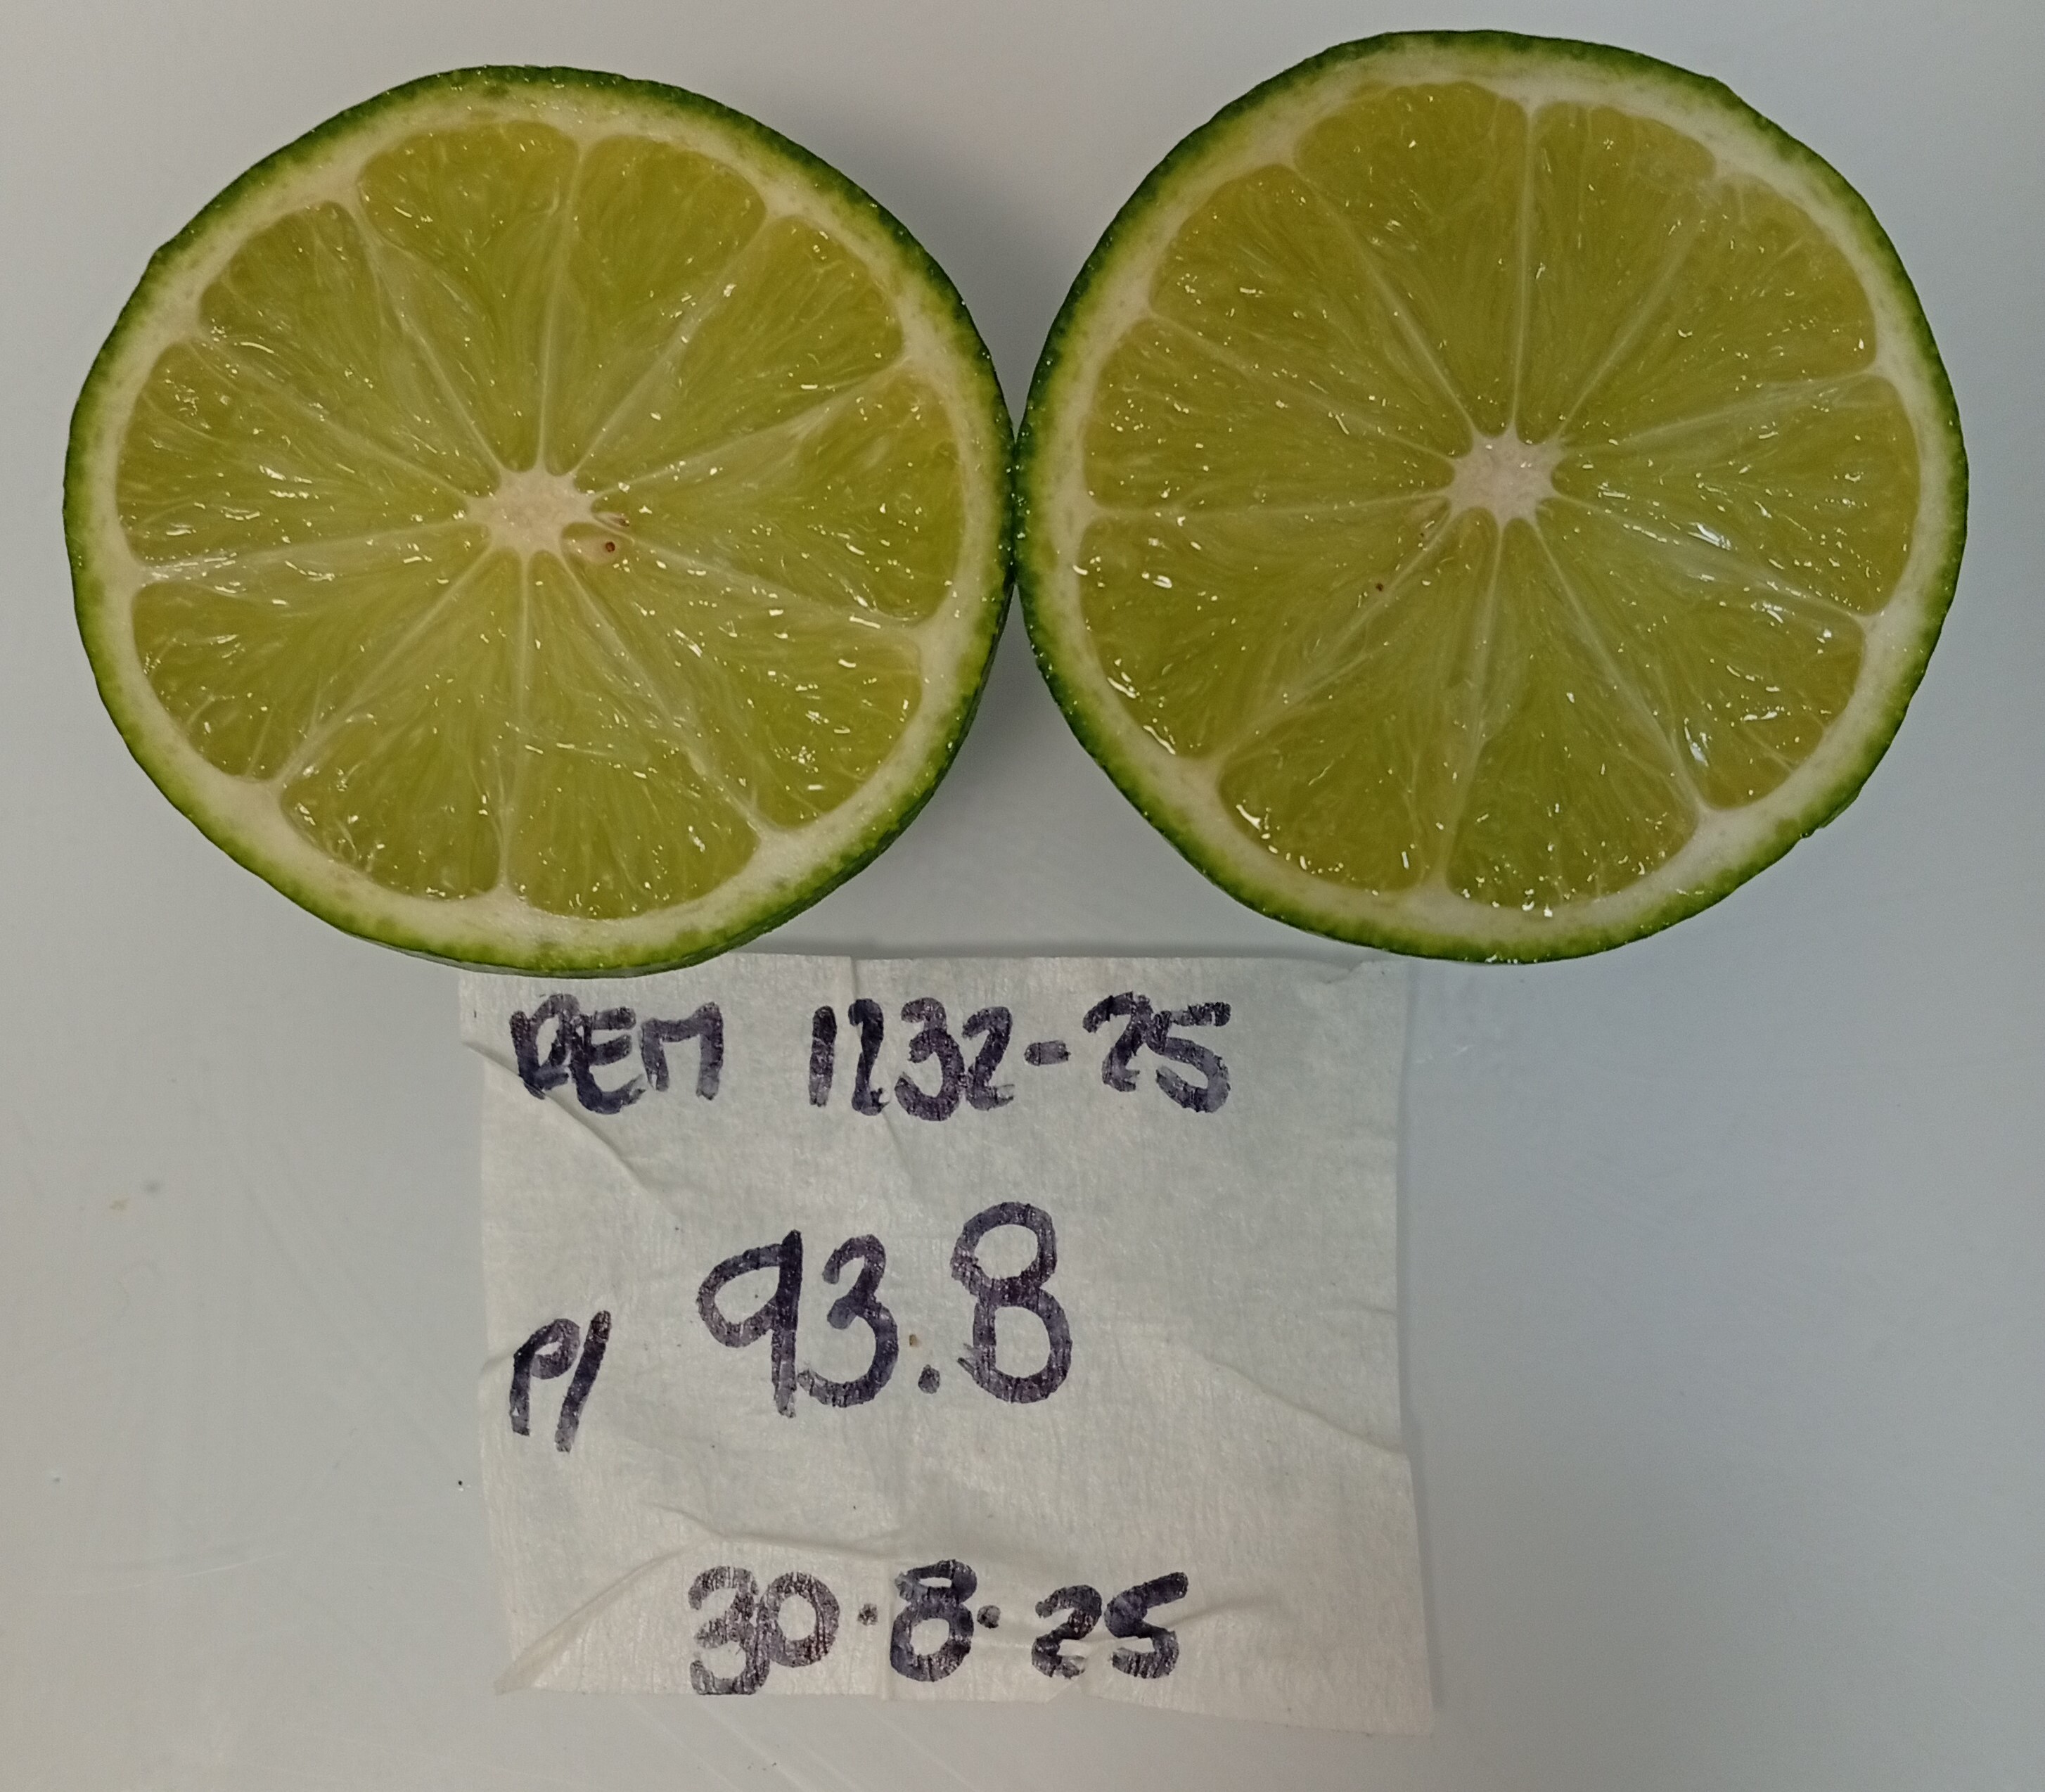 REM 1232-25
P/ 93.8
30.8.25